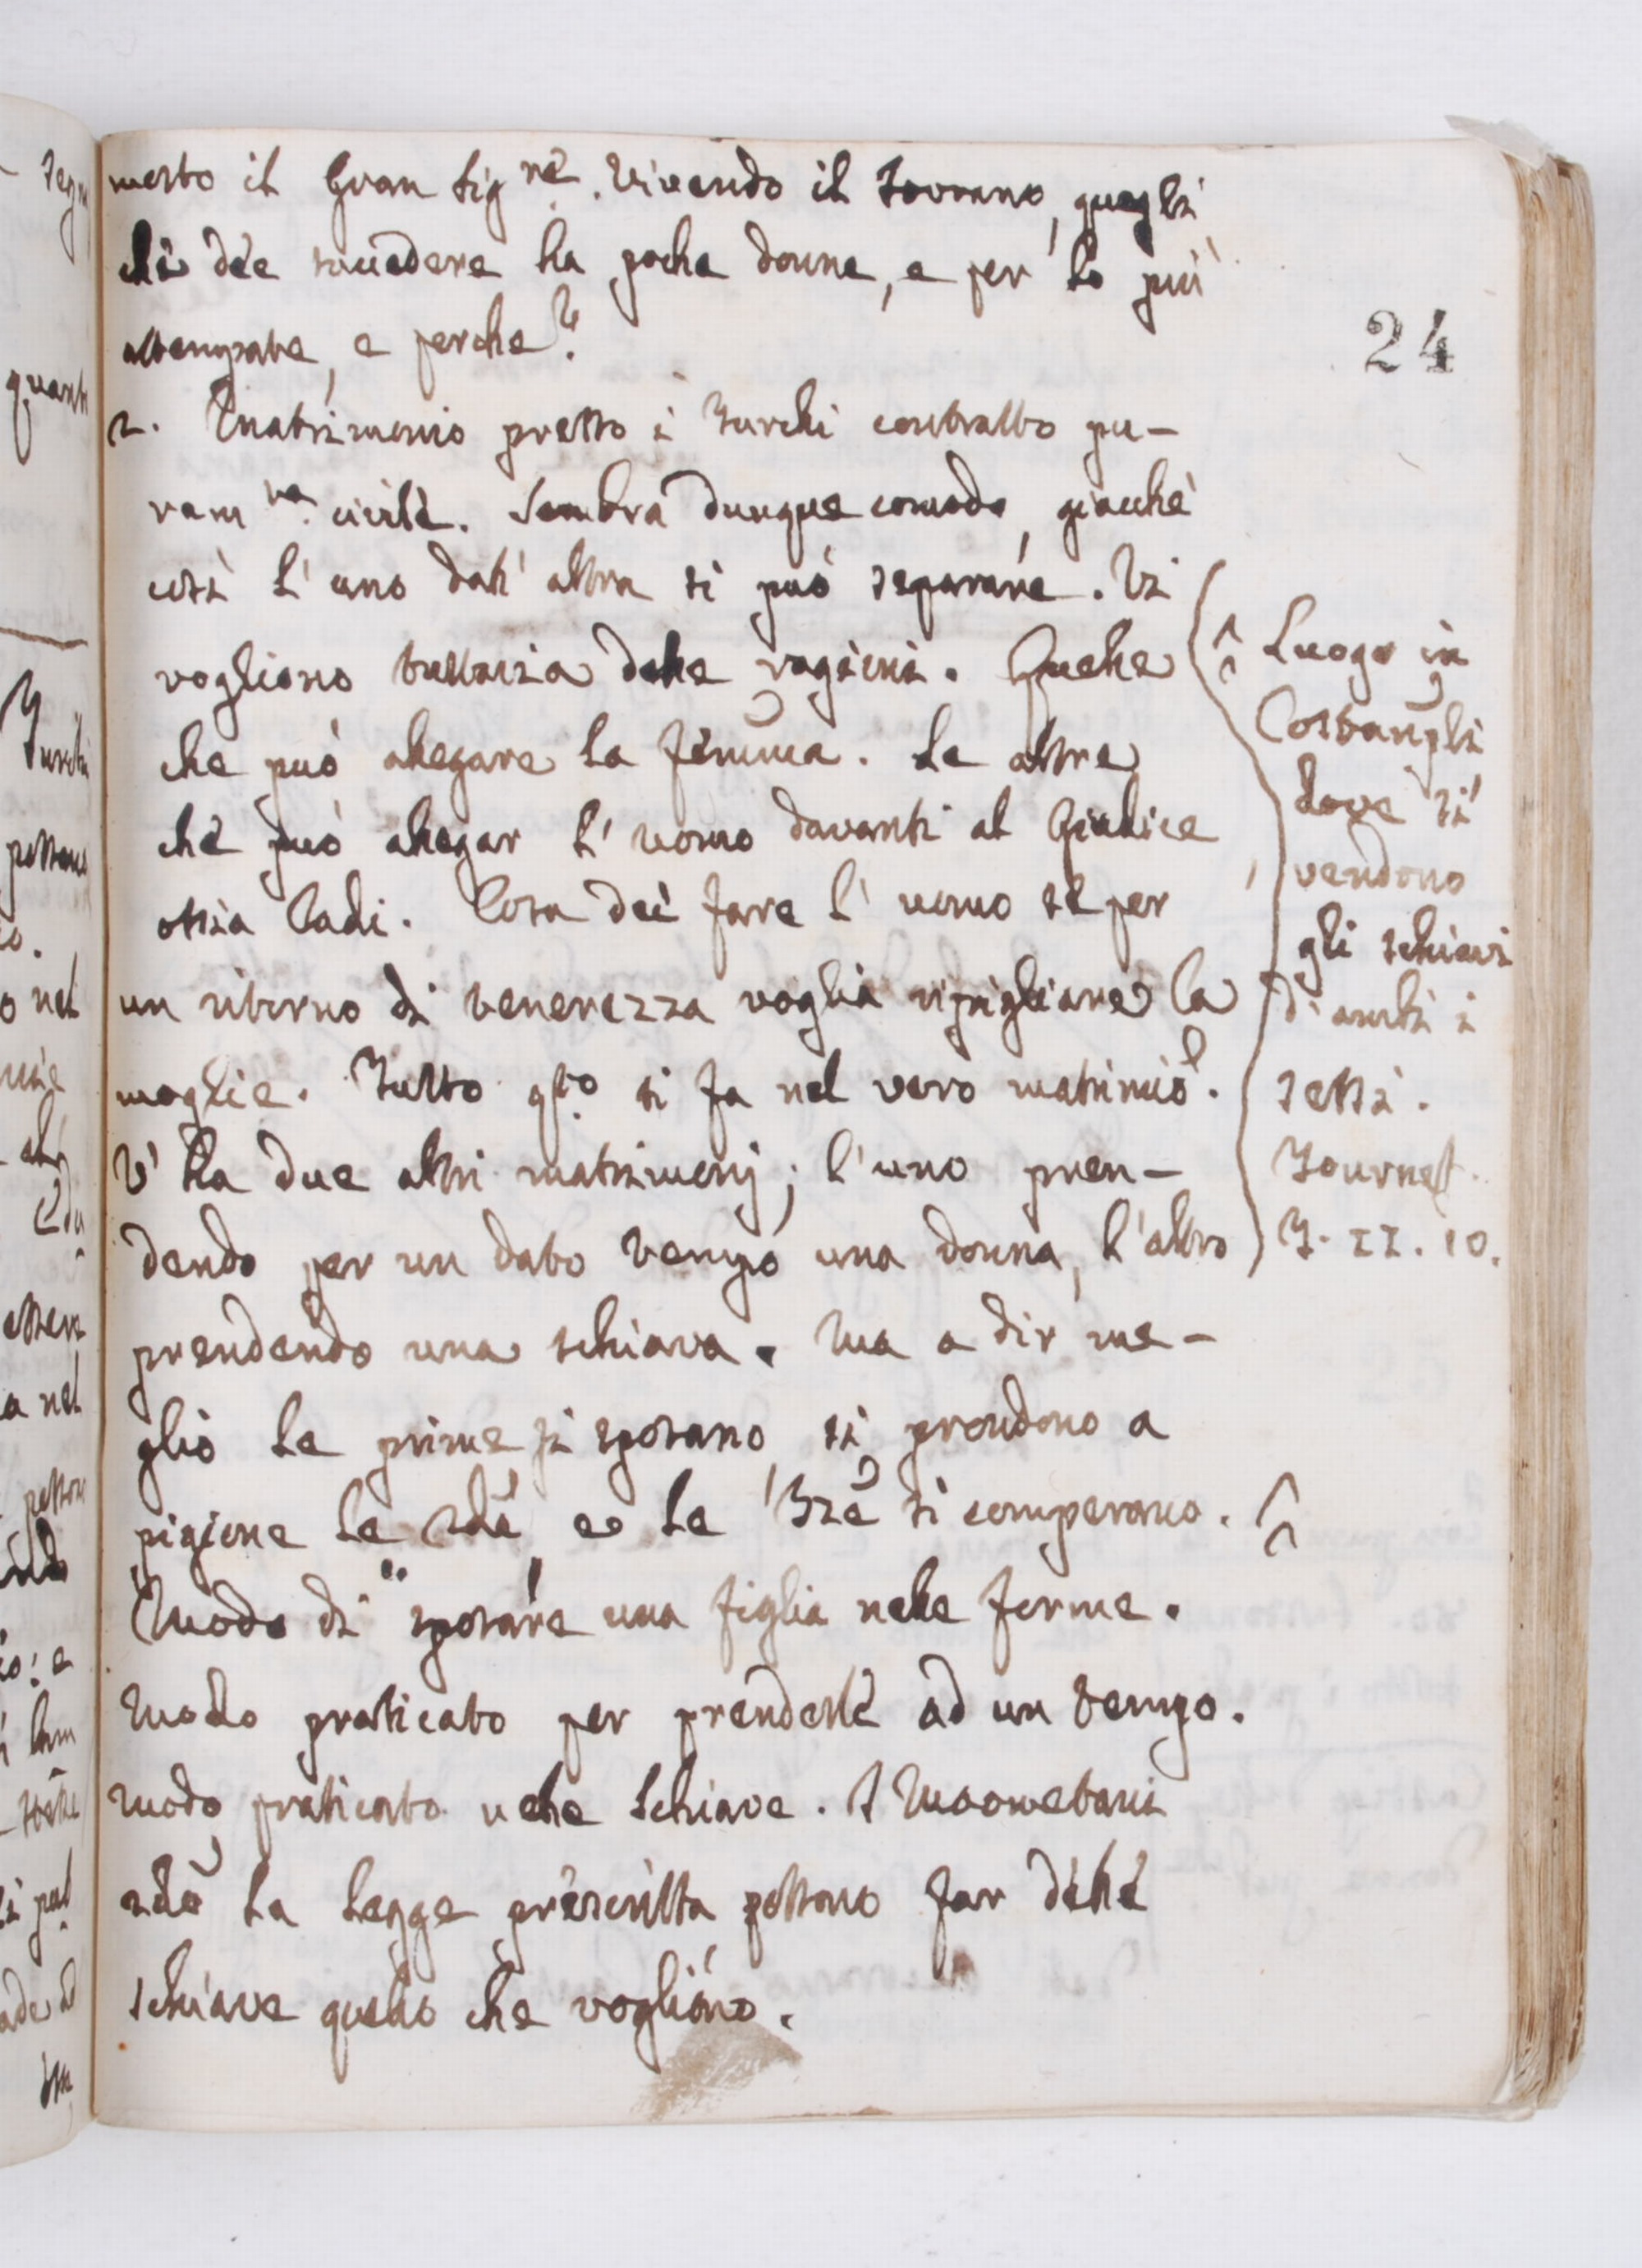 morto il Gran Sig.re. Vivendo il Sovrano, quegli
che dèe succedere ha poche donne, e per lo più
attempate, e perche?
2. Matrimonio presso i Turchi contratto pu-
ram.te civile. Sembra dunque comodo, giacchè
così l'uno dall'altra si può separare. Vi
vogliono tuttavia delle ragioni. Quelle
che può allegare la fem̃ina. Le altre
che può allegar l'uomo davanti al Giudice
ossia Cadi. Cosa deè fare l'uomo se per
un ritorno di tenerezza voglia ripigliare la
moglie. Tutto q.to si fa nel vero matrimio.
V'ha due altri matrimonj; l'uno pren-
dendo per un dato tempo una donna, l'altro
prendendo una schiava. Ma a dir me-
glio le prime si sposano, si prendono a
pigione le 2de, e le 3ze si comperano.
Modo di sposare una figlia nelle forme.
Modo praticato per prenderle ad un tempo.
Modo praticato nelle schiave. I Maomettani
2do la legge prescritta possono far delle
schiave quello che vogliono.
24
Luogo in
Costanpli
dove si
vendono
gli schiavi
d'ambi i
sessi.
Tournef.
T. II. 10.